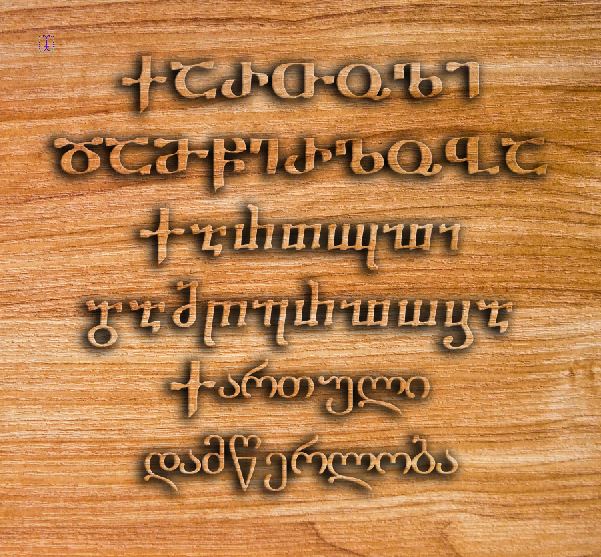 ႵႠႰႧႳႪႨ
ႣႠႋႼႤႰႪႭႡႠ
Ⴕⴀⴐⴇⴓⴊⴈ
ⴃⴀⴋⴜⴄⴐⴊⴍⴁⴀ
Ⴕართული
დამწერლობა